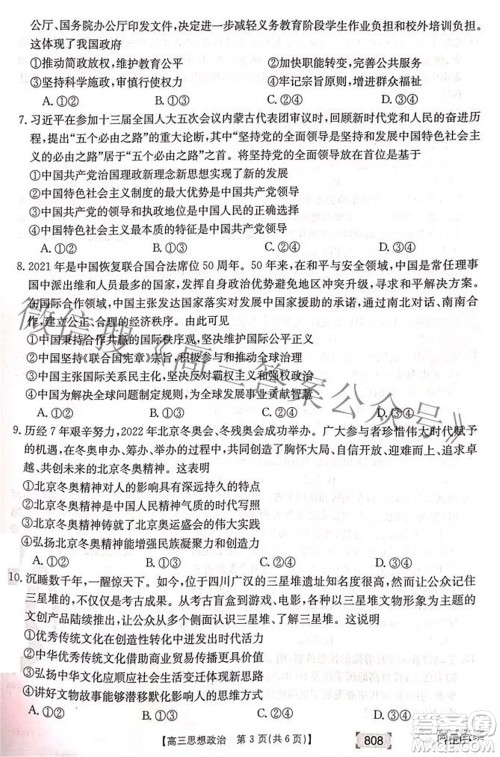 公厅、国务院办公厅印发文件，决定进一步减轻义务教育阶段学生作业负担和校外培训负担。
这体现了我国政府
①推动简政放权，维护教育公平
②加强市场监管，营造良好环境
③坚持科学施政，审慎行使权力
④坚持对人民负责，增进群众福祉
A.①②
B.①③
C.②④
D.③④
7. 习近平在参加十三届全国人大五次会议内蒙古代表团审议时，回顾新时代党和人民奋进历程，提出“五个必由之路”的重大论断，其中“坚持党的全面领导是坚持和发展中国特色社会主义的必由之路”居于“五个必由之路”之首。坚持和加强党的全面领导是基于
①中国共产党治国理政新理念新思想实现了与时俱进
②中国特色社会主义制度的最大优势是中国共产党领导
③中国共产党的领导和执政地位是中国人民的正确选择
④中国特色社会主义最本质的特征是中国共产党领导
A.①②
B.①③
C.②④
D.③④
8. 2021年是中国恢复联合国合法席位50周年。50年来，在和平与安全领域，中国是常任理事国中派出维和人员最多的国家，并积极斡旋，促进多个地区冲突突升级，参与和平解决；在国际合作领域，中国主张发达国家应该对发展中国家提供更多援助，加强南北对话、南南合作，建立公正、合理的经济秩序。由此可见
①中国秉持合作共赢的国际秩序观，坚决维护国际公平正义
②中国坚持《联合国宪章》宗旨，积极参与和推动全球治理
③中国主张国际关系民主化，坚决反对霸权主义和强权政治
④中国为解决全球问题、推动全球发展贡献中国智慧和力量
A.①②
B.①③
C.②④
D.③④
9. 历经7年艰辛努力，2022年北京冬奥会、冬残奥会成功举办。广大参与者珍惜伟大时代赋予的机遇，在冬奥申办、筹办、举办的过程中，共同创造了胸怀大局、自信开放、迎难而上、追求卓越、共创未来的北京冬奥精神。这表明
①北京冬奥精神对人的影响具有深远持久的特点
②北京冬奥精神是中国人民精神气质的时代写照
③北京冬奥精神来源于北京冬奥运会的伟大实践
④弘扬北京冬奥精神可激发文化创新创造的活力
A.①②
B.①④
C.②③
D.③④
10. 沉睡数千年，一醒惊天下。如今，位于四川广汉的三星堆遗址知名度很高，然而，让公众记住三星堆的，不仅仅是考古成果。从考古盲盒到三星堆主题密室，越来越多以三星堆文物形象为主题的文创产品陆续推出，让公众从多个侧面认识了三星堆、喜欢上了三星堆。这说明
①优秀传统文化在创造性转化中焕发新活力
②中华优秀传统文化借助商业贸易而广泛传播
③弘扬中华文化必须营造文化迁移创新的氛围
④讲好文物故事能够潜移默化影响人的思维方式
A.①②
B.①④
C.②③
D.③④
【高三思想政治　第3页(共6页)】
808
微信搜《高三答案公众号》